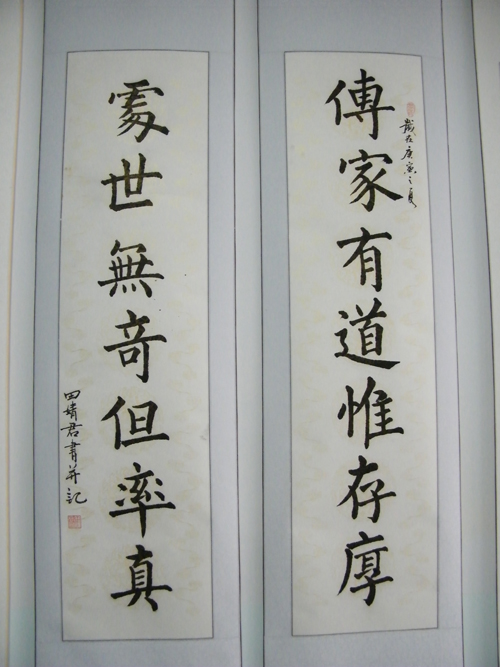 傳家有道惟存厚
歲在庚寅之夏
處世無奇但率真
田婧君書并記